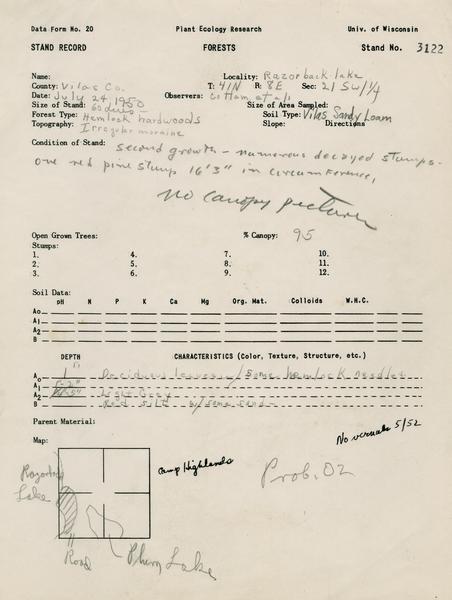 Data Form No. 20 Plant Ecology Research Univ. of Wisconsin
STAND RECORD FORESTS Stand No. 3122
Name: Locality: Razorback lake
County: Vilas Co. T: 41N R: 8E Sec: 21 SW 1/4
Date: July 24, 1950 Observers: Cottam et al
Size of Stand: 60 acres Size of Area Sampled:
Forest Type: Hemlock hardwoods Soil Type: Vilas Sandy Loam
Topography: Irregular moraine Slope: Directions
Condition of Stand: second growth - numerous decayed stumps.
One red pine stump 16'3" in circumference,
No canopy pictures
Open Grown Trees: % Canopy: 95
Stumps:
1. 4. 7. 10.
2. 5. 8. 11.
3. 6. 9. 12.
Soil Data:
pH N P K Ca Mg Org. Mat. Colloids W.H.C.
Ao
A1
A2
B
DEPTH CHARACTERISTICS (Color, Texture, Structure, etc.)
Ao 1" Deciduous leaves w/ some hemlock needles
A1
A2 Light Gray
B Red silt w/ some sand
Parent Material:
No vernals 5/52
Map:
Camp Highlands
Prob. O2
Razorback
Lake
Road
Plum Lake